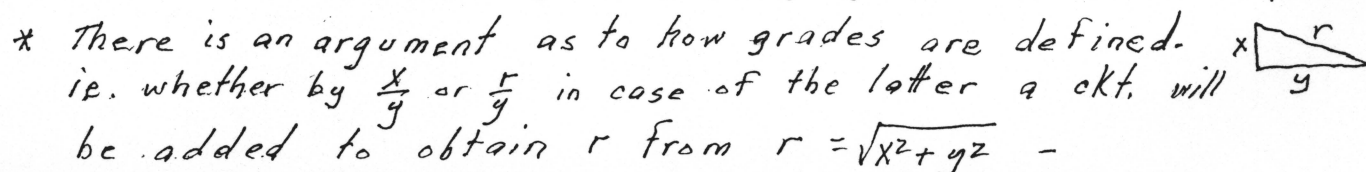 * There is an argument as to how grades are defined. x r
ie. whether by x/y or r/y in case of the latter a ckt. will y
be added to obtain r from r = √x²+y² -